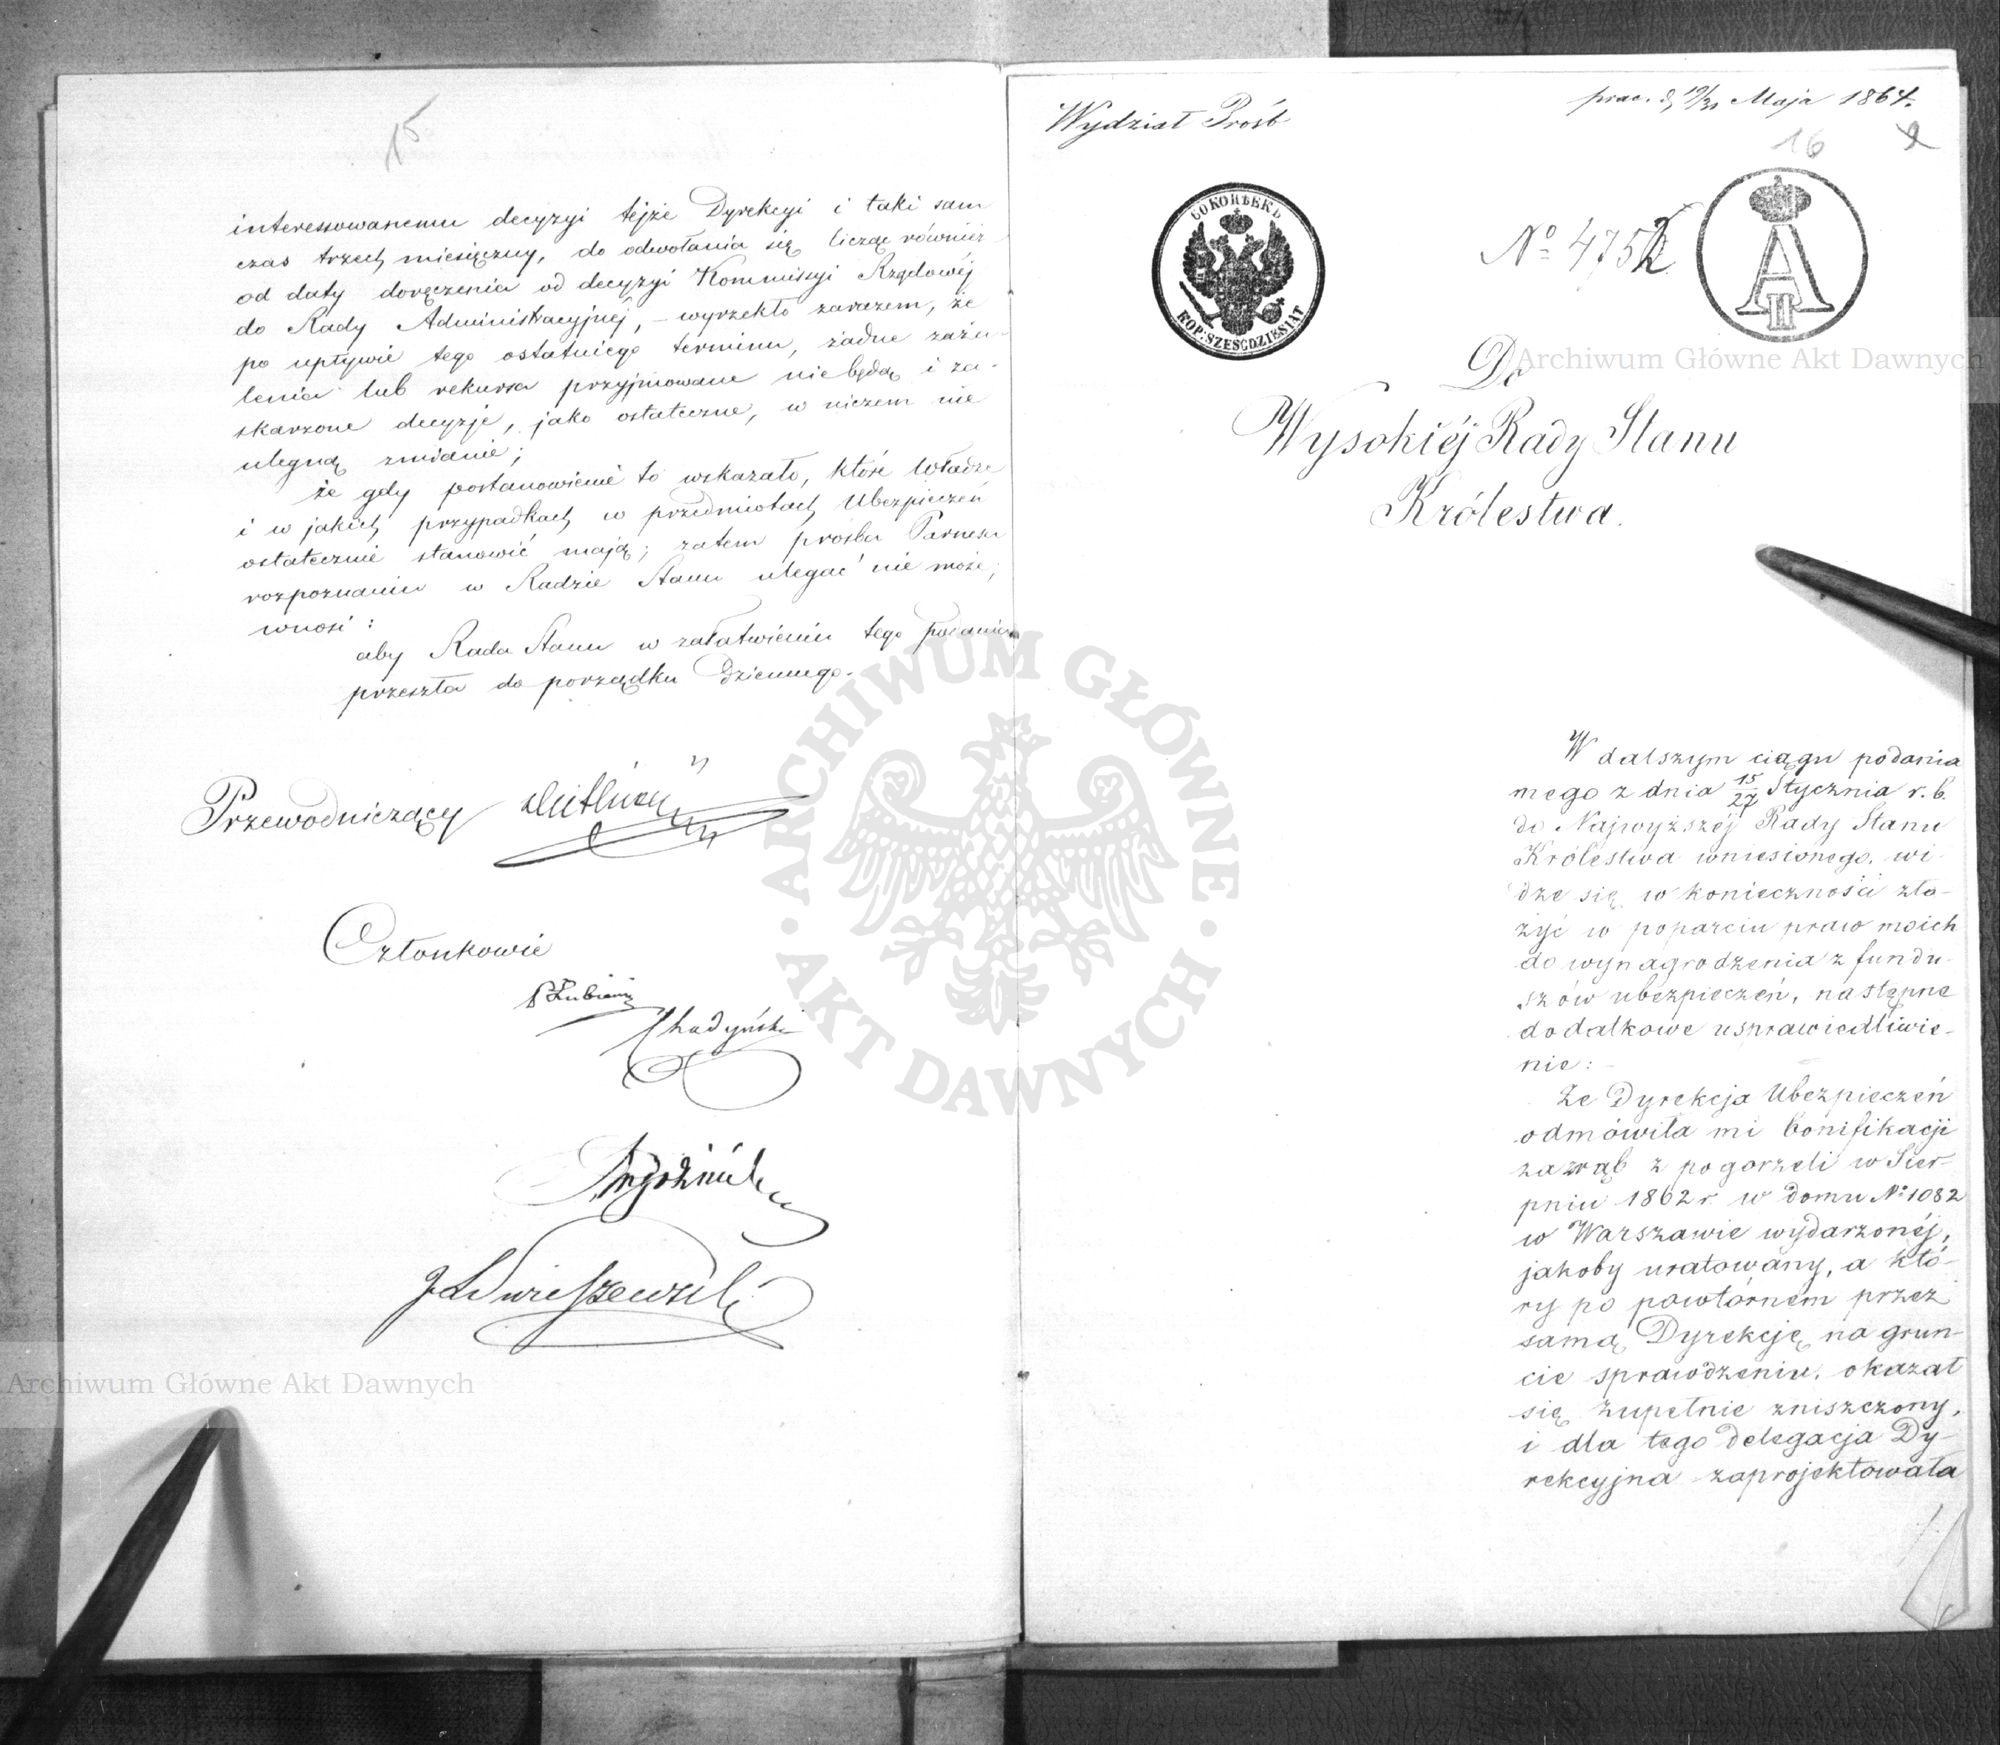 15
interessowanemu decyzyi tejże Dyrekcyi i taki sam
czas trzech miesięczny, do odwołania się licząc również
od daty doręczenia od decyzyi Kommissyi Rządowéj
do Rady Administracyjnéj, – wyrzekło zarazem, że
po upływie tego ostatniego terminu, żadne zaża-
lenia lub rekursa przyjmowane nie będą i za-
skarzone decyzje, jako ostateczne, w niczem nie
ulegną zmianie;
że gdy postanowienie to wskazało, które Władze
i w jakich przypadkach w przedmiotach Ubezpieczeń
ostatecznie stanowić mają; zatem prośba Parnesa
rozpoznaniu w Radzie Stanu ulegać nie może;
wnosi:
aby Rada Stanu w załatwieniu tego podania
przeszła do porządku dziennego.
Przewodniczący
Członkowie
Wydział Próśb
prae. d. 19/31 Maja 1864.
16
60 КОПѢЕКЪ
KOP: SZEŚĆDZIESIĄT
№ 4752
A II
Do
Wysokiéj Rady Stanu
Królestwa.
W dalszym ciągu podania
mego z dnia 15/27 Stycznia r. b.
do Najwyższéj Rady Stanu
Królestwa wniesionego, wi-
dzę się w konieczności zło-
żyć w poparciu praw moich
do wynagrodzenia z fundu-
szów ubezpieczeń, następne
dodatkowe usprawiedliwie-
nie: –
Że Dyrekcja Ubezpieczeń
odmówiła mi bonifikacji
za zrąb z pogorzeli w Sier-
pniu 1862 r. w domu № 1082
w Warszawie wydarzonéj,
jakoby uratowany, a któ-
ry po powtórnem przez
samą Dyrekcję na grun-
cie sprawdzeniu, okazał
się zupełnie zniszczony,
i dla tego delegacja Dy-
rekcyjna zaprojektowała
Archiwum Główne Akt Dawnych
ARCHIWUM GŁÓWNE AKT DAWNYCH
Archiwum Główne Akt Dawnych